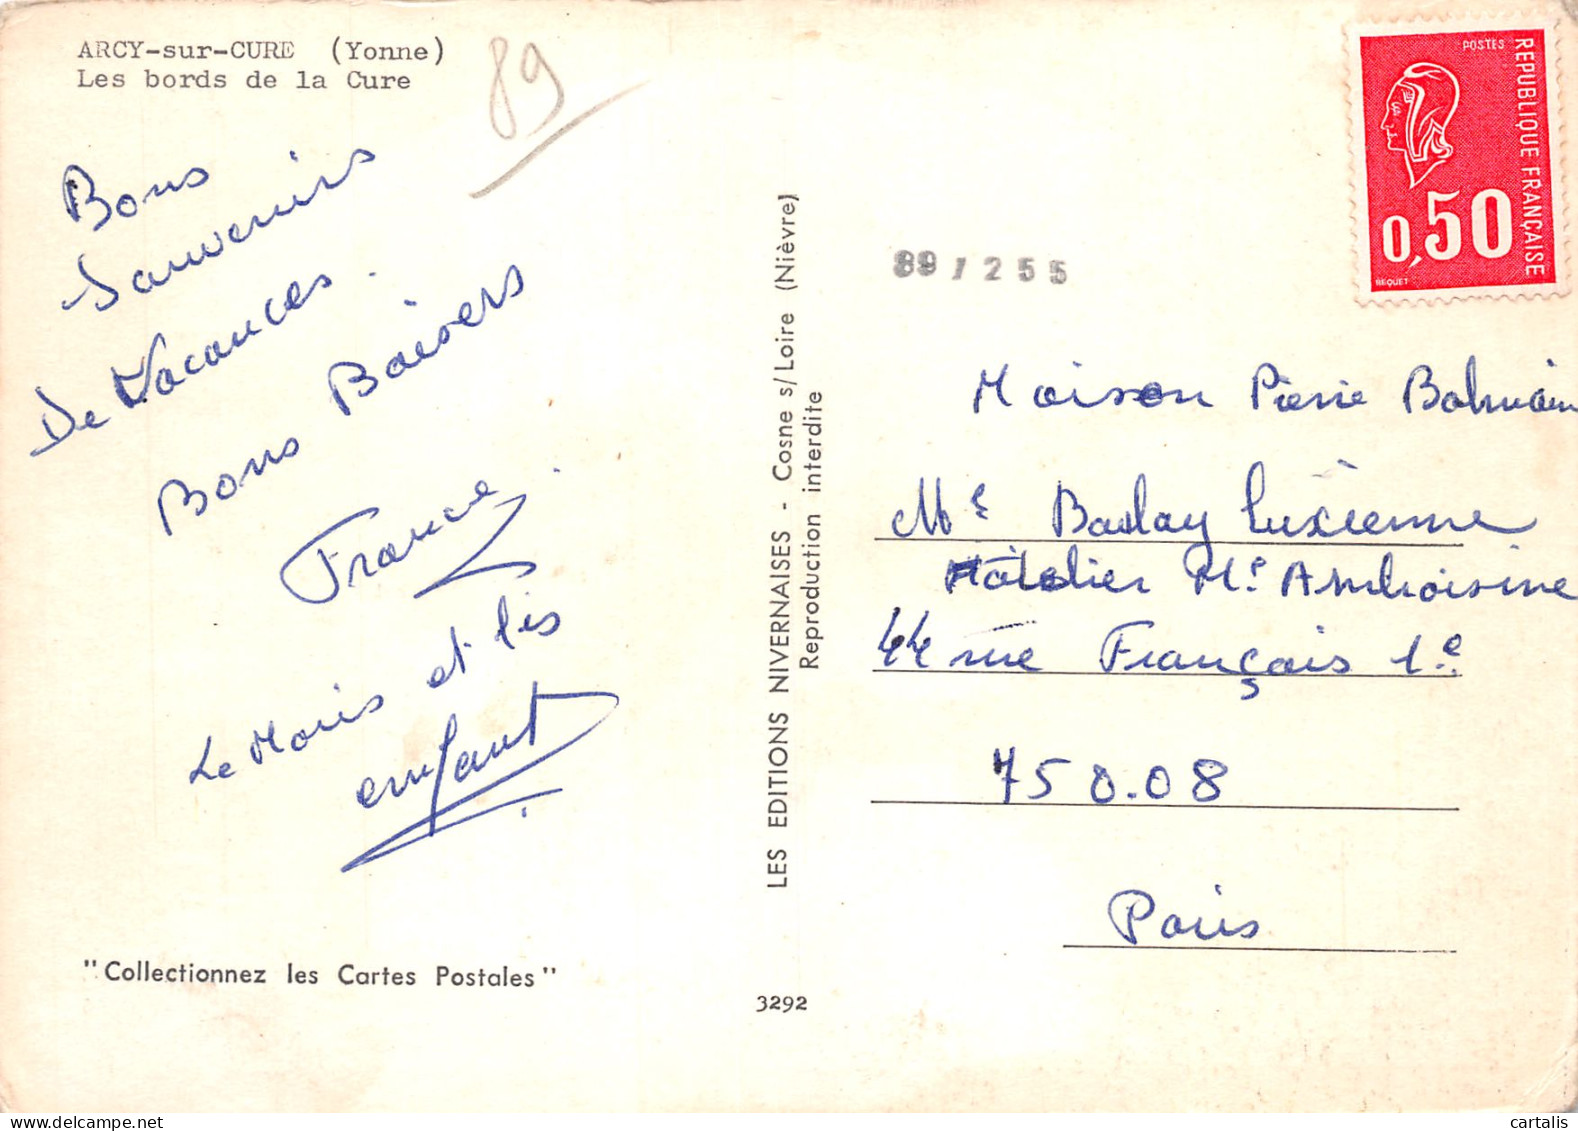 ARCY-sur-CURE (Yonne)
Les bords de la Cure
89
Bons
Souvenirs
De Vacances.
Bons Baisers
France
Le Maris et lis
enfant
"Collectionnez les Cartes Postales"
LES EDITIONS NIVERNAISES - Cosne s/Loire (Nièvre)
Reproduction interdite
3292
89/255
POSTES
REPUBLIQUE FRANÇAISE
0,50
BEQUET
Maison Pierre Balmain
Me Baday Luxienne
Atelier Me Ambroisine
44 rue François 1e
750.08
Paris
www.cartalis.com
cartalis